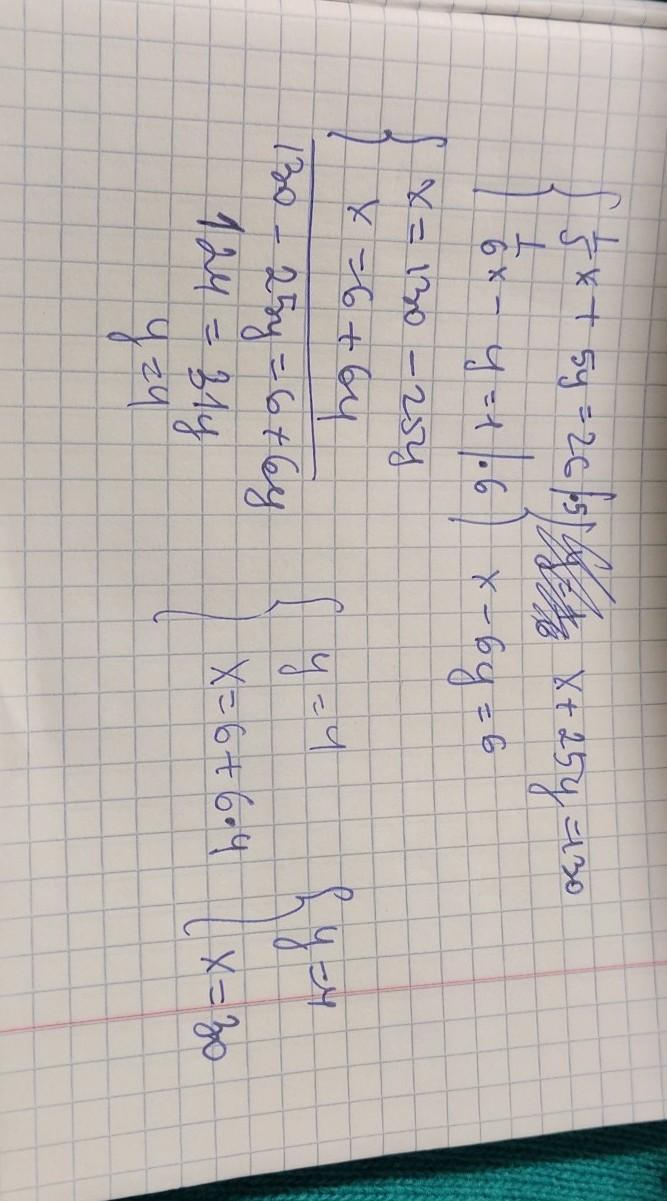 { 1/5 x + 5y = 26 |·5| { x + 25y = 130
{ 1/6 x - y = 1 |·6 { x - 6y = 6
{ x = 130 - 25y
{ x = 6 + 6y
130 - 25y = 6 + 6y
124 = 31y
y = 4
{ y = 4
{ x = 6 + 6·4
{ y = 4
{ x = 30